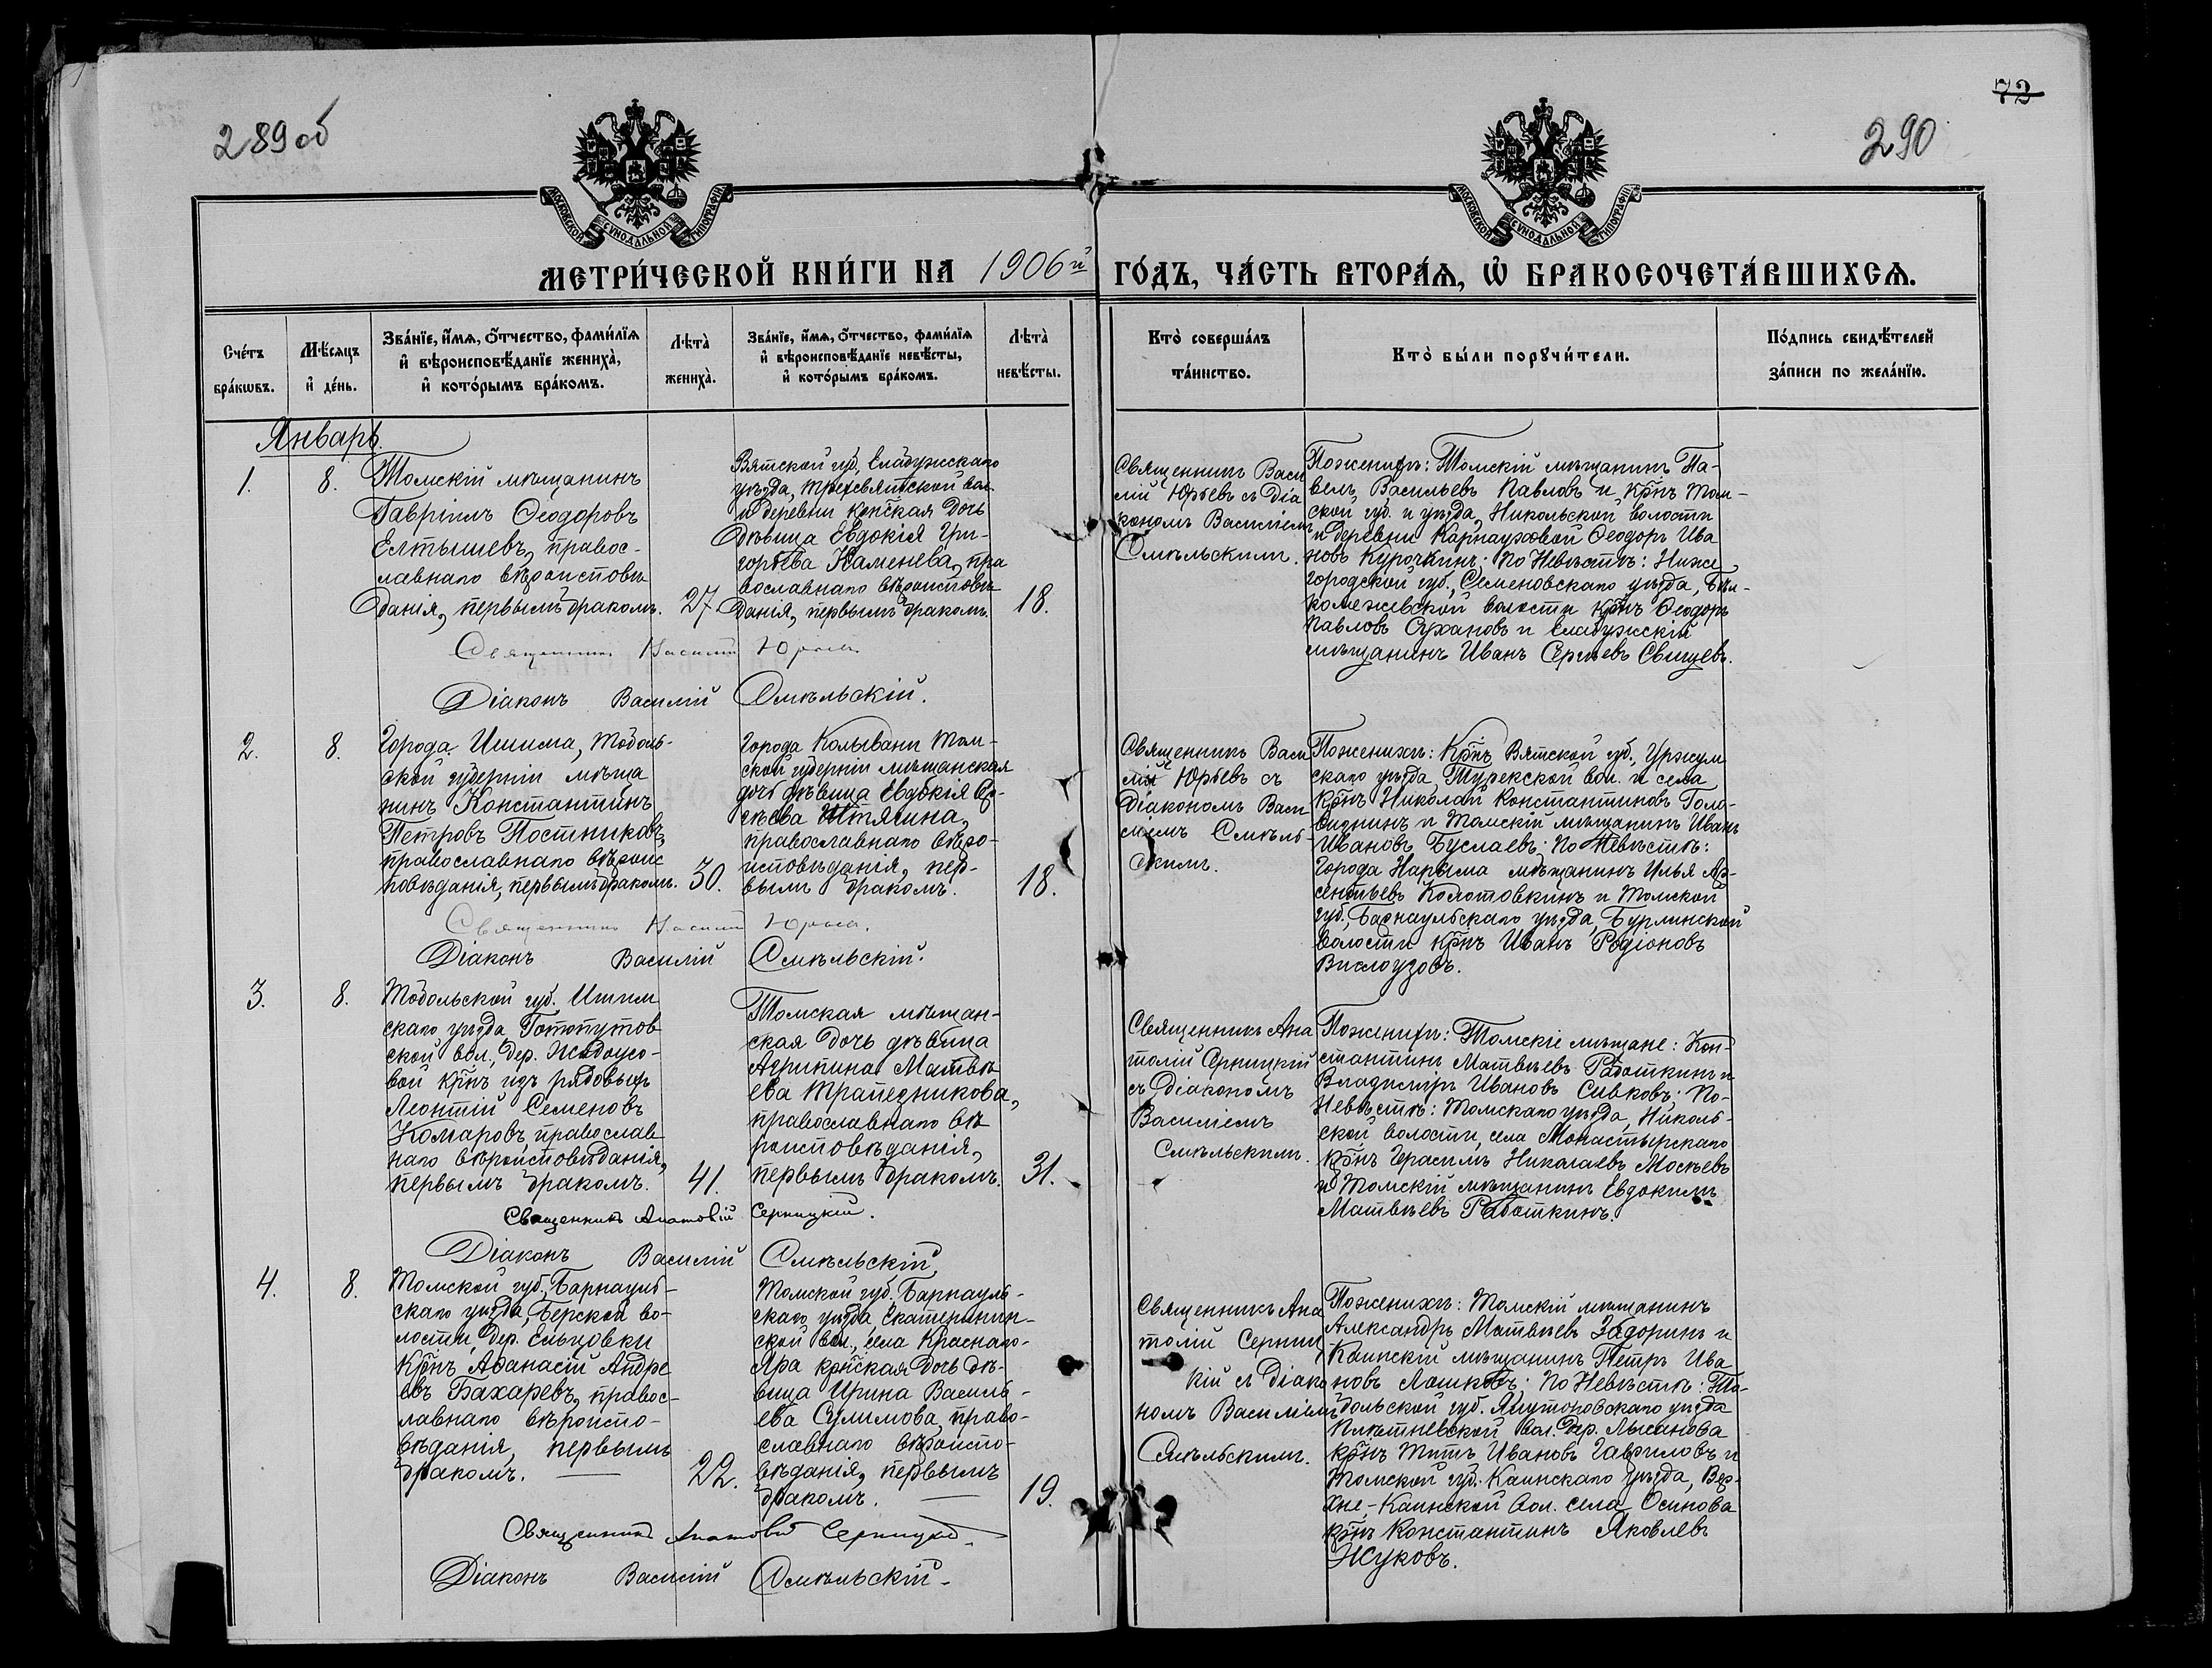 289об
72
290
МОСКОВСКОЙ СѴНОДАЛЬНОЙ ТИПОГРАФІИ
МОСКОВСКОЙ СѴНОДАЛЬНОЙ ТИПОГРАФІИ
МЕТРИ́ЧЕСКОЙ КНИ́ГИ НА 1906й ГО́ДЪ, ЧА́СТЬ ВТОРА́Ѧ, Ѡ҆ БРАКОСОЧЕТА́ВШИХСѦ.
Сче́тъ
бра́кѡвъ.
Мѣ́сяцъ
и҆ де́нь.
Зва́нїе, и҆́мѧ, ѻ҆́тчество, фами́лїѧ
и҆ вѣроисповѣ́данїе жениха̀,
и҆ кото́рымъ бра́комъ.
Лѣта̀
жениха̀.
Зва́нїе, и҆́мѧ, ѻ҆́тчество, фами́лїѧ
и҆ вѣроисповѣ́данїе невѣ́сты,
и҆ кото́рымъ бра́комъ.
Лѣта̀
невѣ́сты.
Кто̀ соверша́лъ
та́инство.
Кто̀ бы́ли порꙋчи́тели.
По́дпись свидѣ́телей
за́писи по жела́нїю.
Январь.
1.
8.
Томскій мѣщанинъ
Гавріилъ Ѳеодоровъ
Елтышевъ, правос-
лавнаго вѣроисповѣ
данія, первымъ бракомъ.
27.
Вятской губ., Елабужскаго
уѣзда, Трехсвятской вол.
и деревни крнская дочь
дѣвица Евдокія Гри-
горьева Каменева, пра
вославнаго вѣроисповѣ
данія, первымъ бракомъ.
18.
Священникъ Васи
лій Юрьевъ съ діа
кономъ Василіемъ
Смѣльскимъ.
По женихѣ: Томскій мѣщанинъ Па-
велъ Васильевъ Павловъ и крнъ Том-
ской губ. и уѣзда, Никольской волости
и деревни Карнауховой Ѳеодоръ Ива
новъ Курочкинъ; по невѣстѣ: Ниже
городской губ., Семеновскаго уѣзда,
волости крнъ Ѳеодоръ
Павловъ Сухановъ и Елабужскій
мѣщанинъ Иванъ Сергѣевъ Свищевъ.
Священникъ Василій Юрьевъ
Діаконъ Василій Смѣльскій.
2.
8.
Города Ишима, Тоболь-
ской губерніи мѣща
нинъ Константинъ
Петровъ Постниковъ,
православнаго вѣроис
повѣданія, первымъ бракомъ.
30.
Города Колывани Том-
ской губерніи мѣщанская
дочь дѣвица Евдокія
православнаго вѣро-
исповѣданія, пер-
вымъ бракомъ.
18.
Священникъ Васи
лій Юрьевъ съ
діакономъ Васи
ліемъ Смѣль-
скимъ.
По женихѣ: Крнъ Вятской губ., Уржум
скаго уѣзда Турекской вол. и села
крнъ Николай Константиновъ Голо-
и Томскій мѣщанинъ Иванъ
Ивановъ Буслаевъ; по невѣстѣ:
Города Нарыма мѣщанинъ Илья Ар-
сентьевъ Колотовкинъ и Томской
губ., Барнаульскаго уѣзда, Бурлинской
волости крнъ Иванъ Родіоновъ
Вислоузовъ.
Священникъ Василій Юрьевъ.
Діаконъ Василій Смѣльскій.
3.
8.
Тобольской губ. Ишим
скаго уѣзда Готопутов
ской вол., дер.
вой крнъ изъ рядовыхъ
Леонтій Семеновъ
Комаровъ, православ
наго вѣроисповѣданія,
первымъ бракомъ.
41.
Томская мѣщан-
ская дочь дѣвица
Агрипина Матвѣ
ева Трапезникова,
православнаго вѣ
роисповѣданія,
первымъ бракомъ.
31.
Священникъ Ана
толій Серницкій
съ діакономъ
Василіемъ
Смѣльскимъ.
По женихѣ: Томскіе мѣщане: Кон-
стантинъ Матвѣевъ Работкинъ и
Владиміръ Ивановъ Сивковъ; по-
невѣстѣ: Томскаго уѣзда, Николь-
ской волости, села Монастырскаго
крнъ Герасимъ Николаевъ Москвевъ
и Томскій мѣщанинъ Евдокимъ
Матвѣевъ Работкинъ.
Священникъ Анатолій Серницкій.
Діаконъ Василій Смѣльскій.
4.
8.
Томской губ., Барнауль-
скаго уѣзда, Берской во-
лости, дер. Ельцовки
крнъ Аѳанасій Андре
евъ Бахаревъ, правос-
лавнаго вѣроиспо-
вѣданія, первымъ
бракомъ.
22.
Томской губ. Барнауль-
скаго уѣзда, Екатеринин-
ской вол., села Краснаго-
Яра крнская дочь дѣ-
вица Ирина Василь-
ева Сулимова, право-
славнаго вѣроиспо-
вѣданія, первымъ
бракомъ.
19.
Священникъ Ана
толій Серниц
кій съ діако
номъ Василіемъ
Смѣльскимъ.
По женихѣ: Томскій мѣщанинъ
Александръ Матвѣевъ Задоринъ и
Каинскій мѣщанинъ Петръ Ива
новъ Лошковъ; по невѣстѣ: То-
больской губ. Ялуторовскаго уѣзда
вол. дер. Лысанова
крнъ Титъ Ивановъ Гавриловъ и
Томской губ. Каинскаго уѣзда, Вер-
хне-Каинской вол. села Осинова
крнъ Константинъ Яковлевъ
Жуковъ.
Священникъ Анатолій Серницкій.
Діаконъ Василій Смѣльскій.